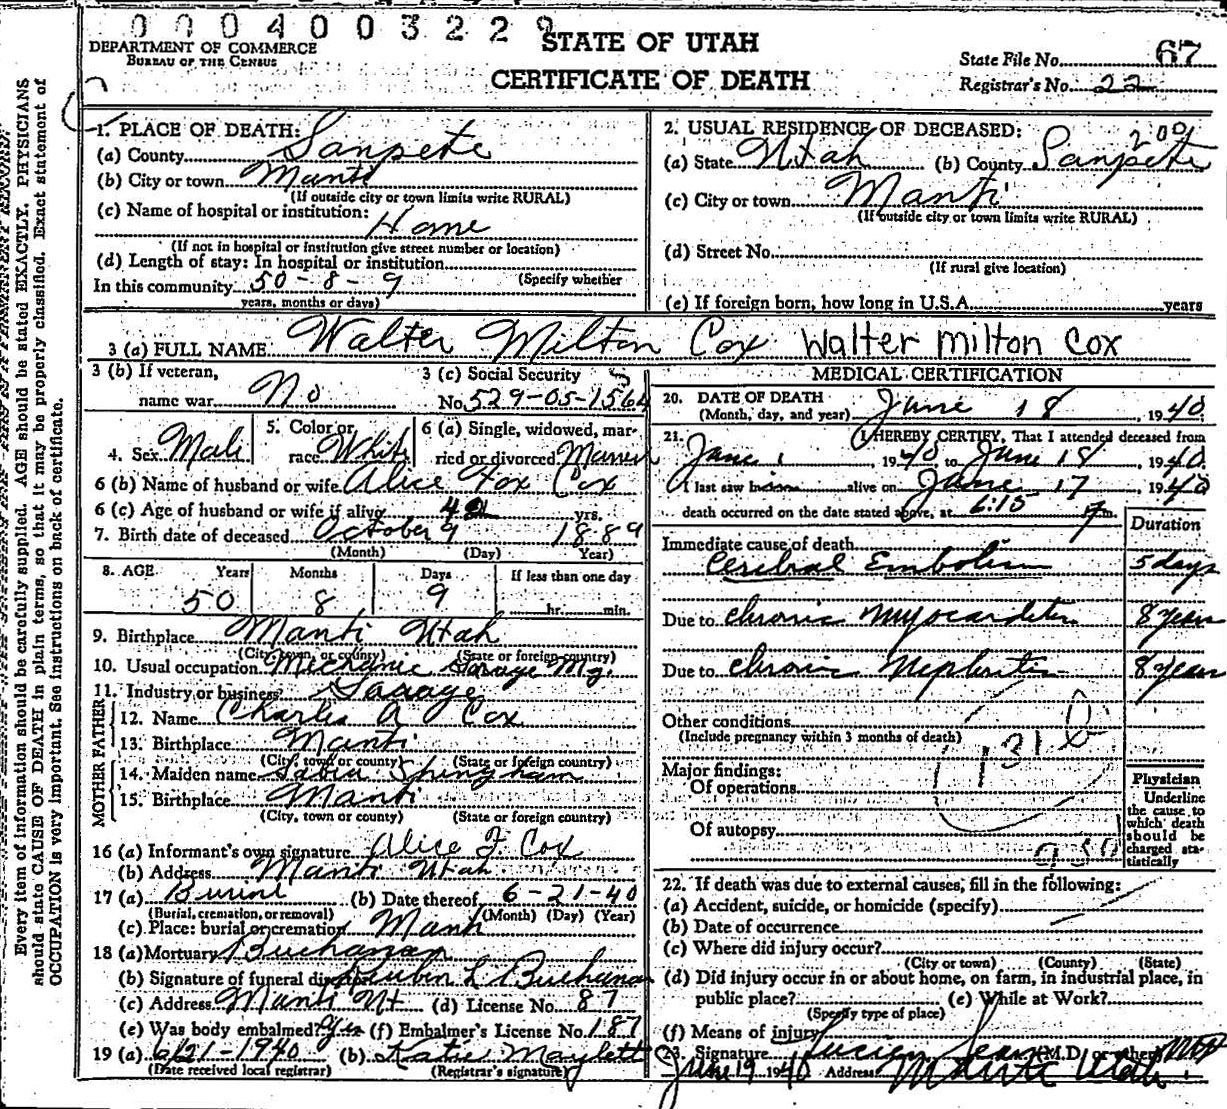 0004003229
DEPARTMENT OF COMMERCE
BUREAU OF THE CENSUS
STATE OF UTAH
CERTIFICATE OF DEATH
State File No. 67
Registrar's No. 22
Every item of information should be carefully supplied. AGE should be stated EXACTLY. PHYSICIANS
should state CAUSE OF DEATH in plain terms, so that it may be properly classified. Exact statement of
OCCUPATION is very important. See instructions on back of certificate.
1. PLACE OF DEATH:
(a) County Sanpete
(b) City or town Manti
(If outside city or town limits write RURAL)
(c) Name of hospital or institution:
Home
(If not in hospital or institution give street number or location)
(d) Length of stay: In hospital or institution
(Specify whether
In this community 50-8-9
years, months or days)
2. USUAL RESIDENCE OF DECEASED:
200
(a) State Utah (b) County Sanpete
(c) City or town Manti
(If outside city or town limits write RURAL)
(d) Street No.
(If rural give location)
(e) If foreign born, how long in U.S.A. years
3 (a) FULL NAME Walter Milton Cox Walter Milton Cox
3 (b) If veteran,
name war No
3 (c) Social Security
No. 529-05-156
4. Sex Male
5. Color or
race White
6 (a) Single, widowed, mar-
ried or divorced Married
6 (b) Name of husband or wife Alice Fox Cox
6 (c) Age of husband or wife if alive yrs.
7. Birth date of deceased October 9 1889
(Month) (Day) Year)
8. AGE Years Months Days If less than one day
50 8 9 hr. min.
9. Birthplace Manti Utah
(City, town, or county) (State or foreign country)
10. Usual occupation Mechanic Garage Mg.
11. Industry or business Garage
FATHER
12. Name Charles A Cox
13. Birthplace Manti
(City, town or county) (State or foreign country)
MOTHER
14. Maiden name
15. Birthplace Manti
(City, town or county) (State or foreign country)
16 (a) Informant's own signature Alice F Cox
(b) Address Manti Utah
17 (a) Burial (b) Date thereof 6-21-40
(Burial, cremation, or removal) (Month) (Day) (Year)
(c) Place: burial or cremation Manti
18 (a) Mortuary Buchanan
(b) Signature of funeral director Reubin L Buchanan
(c) Address Manti Ut (d) License No. 87
(e) Was body embalmed? Yes (f) Embalmer's License No. 187
19 (a) 6/21-1940 (b) Katie Maylett
(Date received local registrar) (Registrar's signature)
MEDICAL CERTIFICATION
20. DATE OF DEATH
(Month, day, and year) June 18, 1940
21. I HEREBY CERTIFY, That I attended deceased from
1940 to June 18, 1940
I last saw alive on June 17, 1940
death occurred on the date stated above, at 6:15 m.
Duration
Immediate cause of death
Cerebral Embolism 5 days
Due to chronic Myocarditis 8 years
Due to chronic Nephritis 8 years
Other conditions
(Include pregnancy within 3 months of death)
131 b
Major findings:
Of operations
Of autopsy
Physician
Underline
the cause to
which death
should be
charged sta-
tistically
22. If death was due to external causes, fill in the following:
(a) Accident, suicide, or homicide (specify)
(b) Date of occurrence
(c) Where did injury occur?
(City or town) (County) (State)
(d) Did injury occur in or about home, on farm, in industrial place, in
public place? (e) While at Work?
(Specify type of place)
(f) Means of injury
23. Signature Lucien Sears (M.D. or other)
June 19 1940 Address Manti Utah